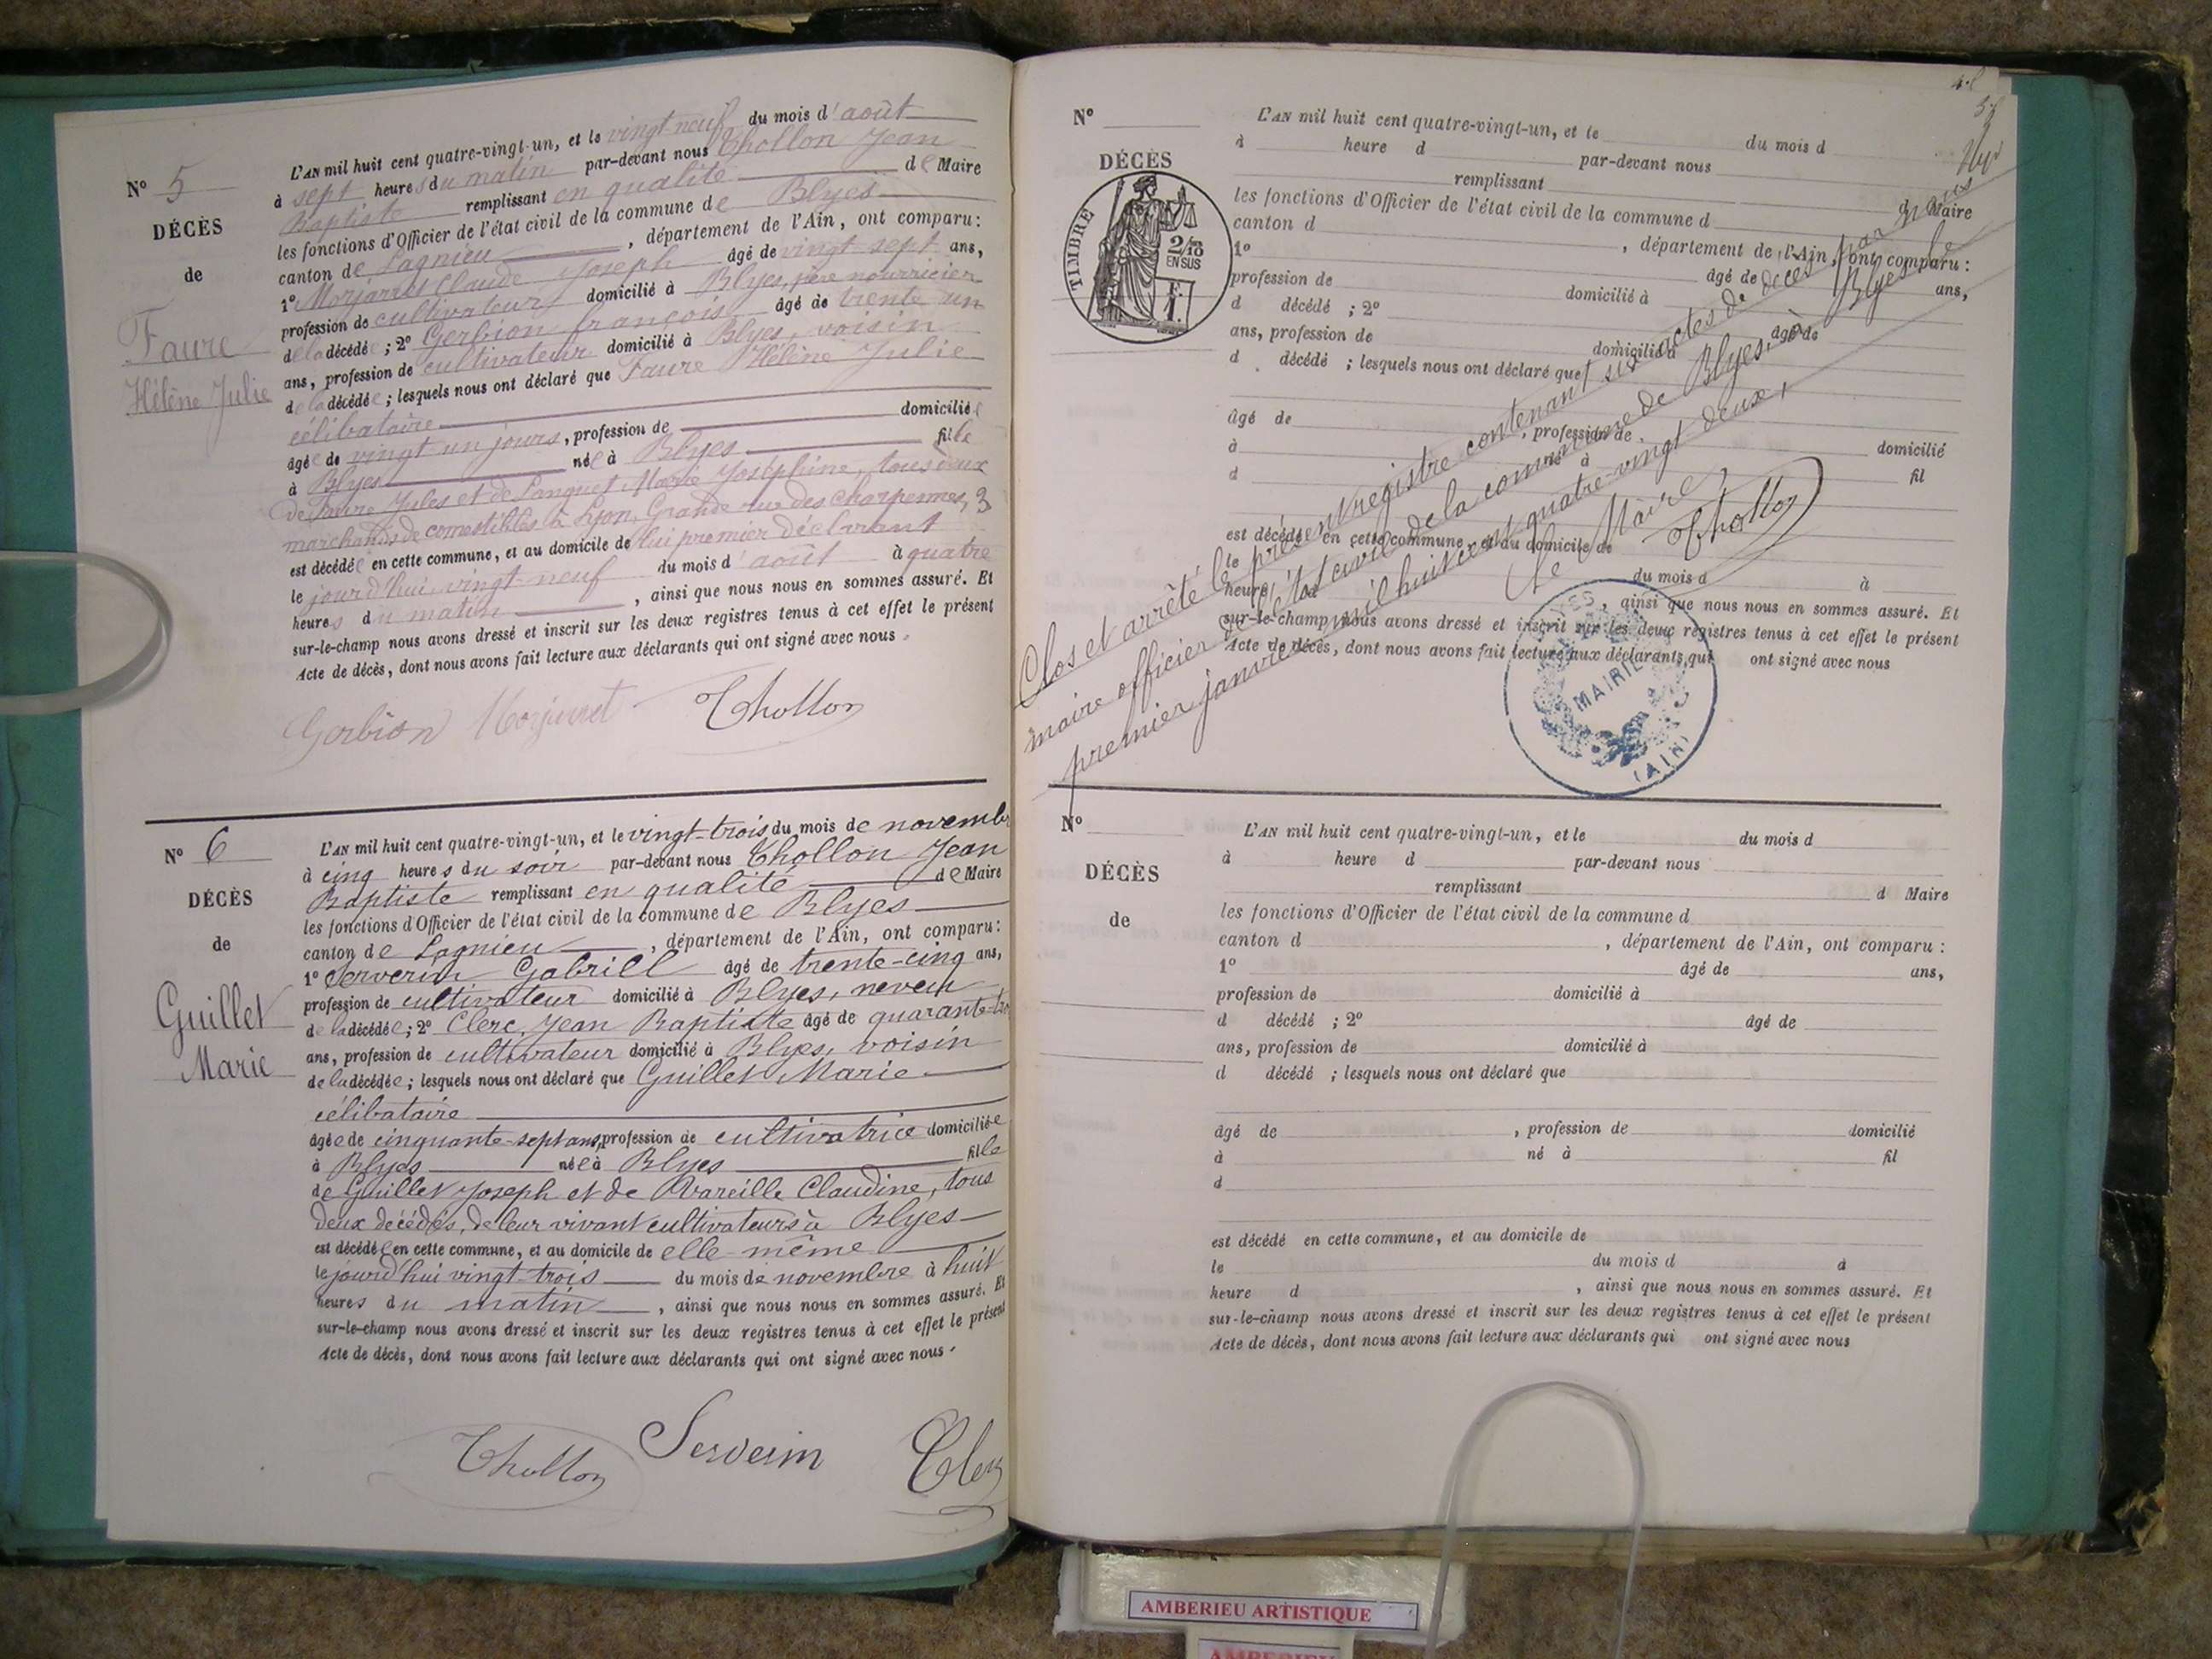 N° 5
DÉCÈS
de
Faure
Hélène Julie
L'AN mil huit cent quatre-vingt-un, et le vingt-neuf du mois d'août
à sept heures du matin par-devant nous Chollon Jean
Baptiste remplissant en qualité de Maire
les fonctions d'Officier de l'état civil de la commune de Blyes
canton de Lagnieu, département de l'Ain, ont comparu :
1° Claude Joseph âgé de vingt sept ans,
profession de cultivateur domicilié à Blyes, père nourricier
de la décédée ; 2° Gerbion françois âgé de trente un
ans, profession de cultivateur domicilié à Blyes, voisin
de la décédée ; lesquels nous ont déclaré que Faure Hélène Julie
célibataire
âgée de vingt un jours, profession de domiciliée
à Blyes née à Blyes fille
de Faure Jules et de Marie Joséphine, tous deux
marchands de comestibles à Lyon, Grande rue des Charpennes, 3
est décédée en cette commune, et au domicile de lui premier déclarant
le jourd'hui vingt-neuf du mois d'août à quatre
heures du matin, ainsi que nous nous en sommes assuré. Et
sur-le-champ nous avons dressé et inscrit sur les deux registres tenus à cet effet le présent
Acte de décès, dont nous avons fait lecture aux déclarants qui ont signé avec nous.
Gerbion Chollon
N° 6
DÉCÈS
de
Guillet
Marie
L'AN mil huit cent quatre-vingt-un, et le vingt-trois du mois de novembre
à cinq heures du soir par-devant nous Chollon Jean
Baptiste remplissant en qualité de Maire
les fonctions d'Officier de l'état civil de la commune de Blyes
canton de Lagnieu, département de l'Ain, ont comparu :
1° Serverin Gabriel âgé de trente-cinq ans,
profession de cultivateur domicilié à Blyes, neveu
de la décédée ; 2° Clerc Jean Baptiste âgé de quarante-
ans, profession de cultivateur domicilié à Blyes, voisin
de la décédée ; lesquels nous ont déclaré que Guillet Marie
célibataire
âgée de cinquante-sept ans, profession de cultivatrice domiciliée
à Blyes née à Blyes fille
de Guillet Joseph et de Claudine, tous
deux décédés, de leur vivant cultivateurs à Blyes
est décédée en cette commune, et au domicile de elle-même
le jourd'hui vingt-trois du mois de novembre à huit
heures du matin, ainsi que nous nous en sommes assuré. Et
sur-le-champ nous avons dressé et inscrit sur les deux registres tenus à cet effet le présent
Acte de décès, dont nous avons fait lecture aux déclarants qui ont signé avec nous.
Chollon Serverin Clerc
N°
DÉCÈS
TIMBRE
2/10
EN SUS
L'AN mil huit cent quatre-vingt-un, et le du mois d
à heure d par-devant nous
remplissant d Maire
les fonctions d'Officier de l'état civil de la commune d
canton d , département de l'Ain, ont comparu :
1° âgé de ans,
profession de domicilié à
d décédé ; 2° âgé de
ans, profession de domicilié à
d décédé ; lesquels nous ont déclaré que
âgé de , profession de domicilié
à né à fil
d
est décédé en cette commune, et au domicile de
le du mois d à
heure d , ainsi que nous nous en sommes assuré. Et
sur-le-champ nous avons dressé et inscrit sur les deux registres tenus à cet effet le présent
Acte de décès, dont nous avons fait lecture aux déclarants qui ont signé avec nous
Clos et arrêté le présent registre contenant six actes de décès par nous
maire officier de l'état civil de la commune de Blyes, à Blyes le
premier janvier mil huit cent quatre-vingt deux,
Le Maire,
Chollon
MAIRIE
(AIN)
N°
DÉCÈS
de
L'AN mil huit cent quatre-vingt-un, et le du mois d
à heure d par-devant nous
remplissant d Maire
les fonctions d'Officier de l'état civil de la commune d
canton d , département de l'Ain, ont comparu :
1° âgé de ans,
profession de domicilié à
d décédé ; 2° âgé de
ans, profession de domicilié à
d décédé ; lesquels nous ont déclaré que
âgé de , profession de domicilié
à né à fil
d
est décédé en cette commune, et au domicile de
le du mois d à
heure d , ainsi que nous nous en sommes assuré. Et
sur-le-champ nous avons dressé et inscrit sur les deux registres tenus à cet effet le présent
Acte de décès, dont nous avons fait lecture aux déclarants qui ont signé avec nous
AMBERIEU ARTISTIQUE
AMBERIEU